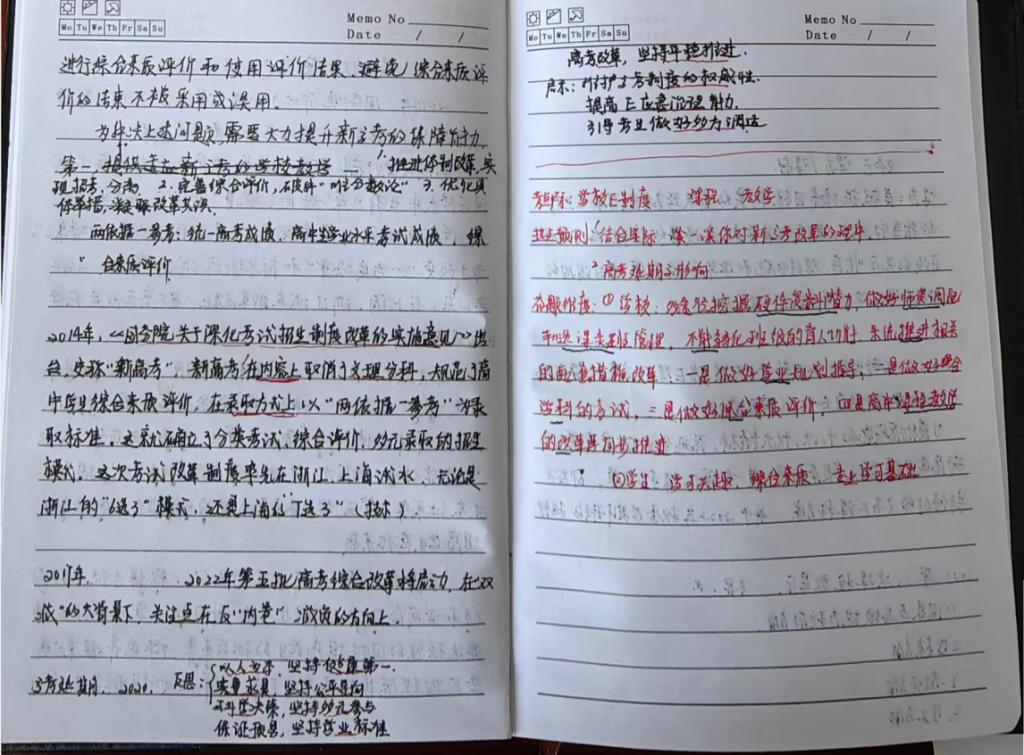 Memo No
Mo Tu We Th Fr Sa Su
Date / /
进行综合素质评价和使用评价结果,避免综合素质评
价的结果不被采用或误用.
为解决上述问题,需要大力提升新高考的保障能力.
第一,提供适应新高考的学校教学 1.推进体制改革,实
现招考分离 2.完善综合评价,破除"唯分数论" 3.优化具
体举措,凝聚改革共识.
两依据一参考:统一高考成绩、高中学业水平考试成绩,综
合素质评价
2014年,《国务院关于深化考试招生制度改革的实施意见》出
台,史称"新高考".新高考在内容上取消了文理分科,规范了高
中学生综合素质评价,在录取方式上以"两依据一参考"为录
取标准,这就确立了分类考试、综合评价、多元录取的招生
模式.这次考试改革制度率先在浙江、上海试水,无论是
浙江的"7选3"模式,还是上海的"6选3"
2022年第五批高考综合改革将启动,在"双
减"的大背景下,关注点在反"内卷"、减负的方向上.
高考延期.2020. 反思:
以人为本,坚持健康第一.
实事求是,坚持公平导向
科学决策,坚持多元参与
保证预案,坚持学业标准
Memo No
Mo Tu We Th Fr Sa Su
Date / /
高考改革,坚持平稳推进.
启示:维护高考制度的权威性.
提高应急治理能力.
引导考生做好努力调适
学校 制度 课程 教学
结合实际 谈一谈你对新高考改革的理解
2.高考延期的影响
答题维度:①学校:多途径挖掘硬件资料潜力,做好师资调配
不能弱化班级的育人功能.系统推进相关
的配套措施改革:一是做好学业规划指导,二是做好全
学科的考试,三是做好综合素质评价,四是高中学校教学
的改革要同步推进
②学生:学习兴趣、综合素质、专业学习基础